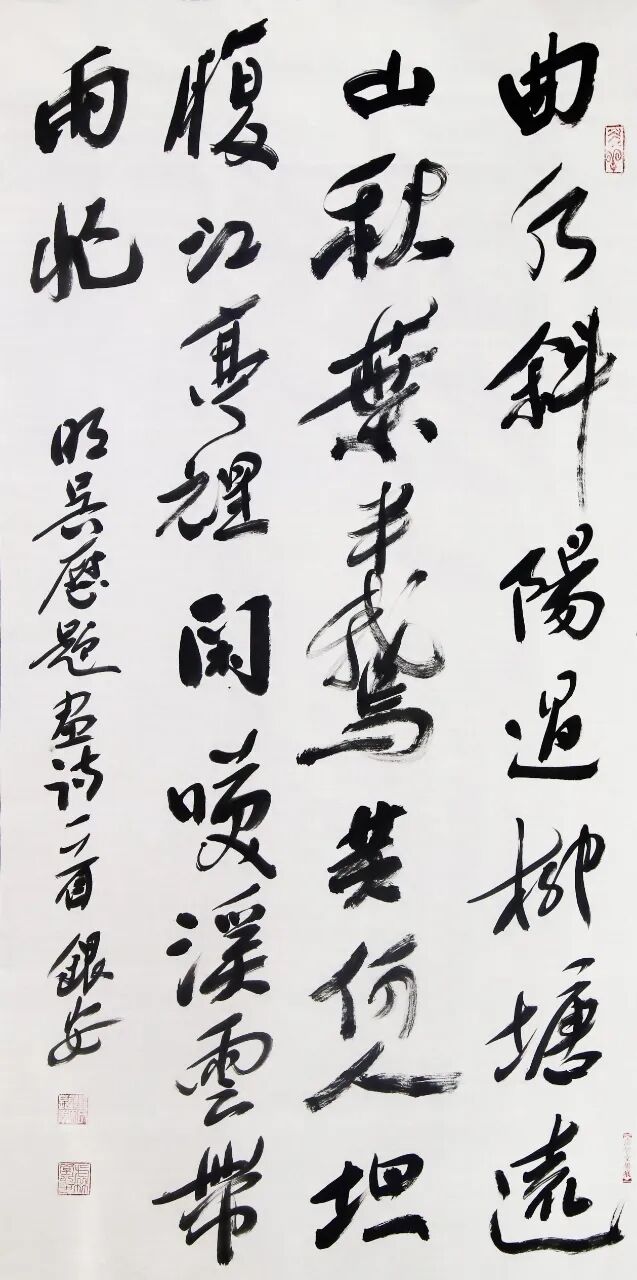 曲水斜陽過柳塘遠
山秋葉半鵝黄何人坦
腹江亭裡閑咲溪雲帶
雨忙
明吳歷題畫詩一首 銀安